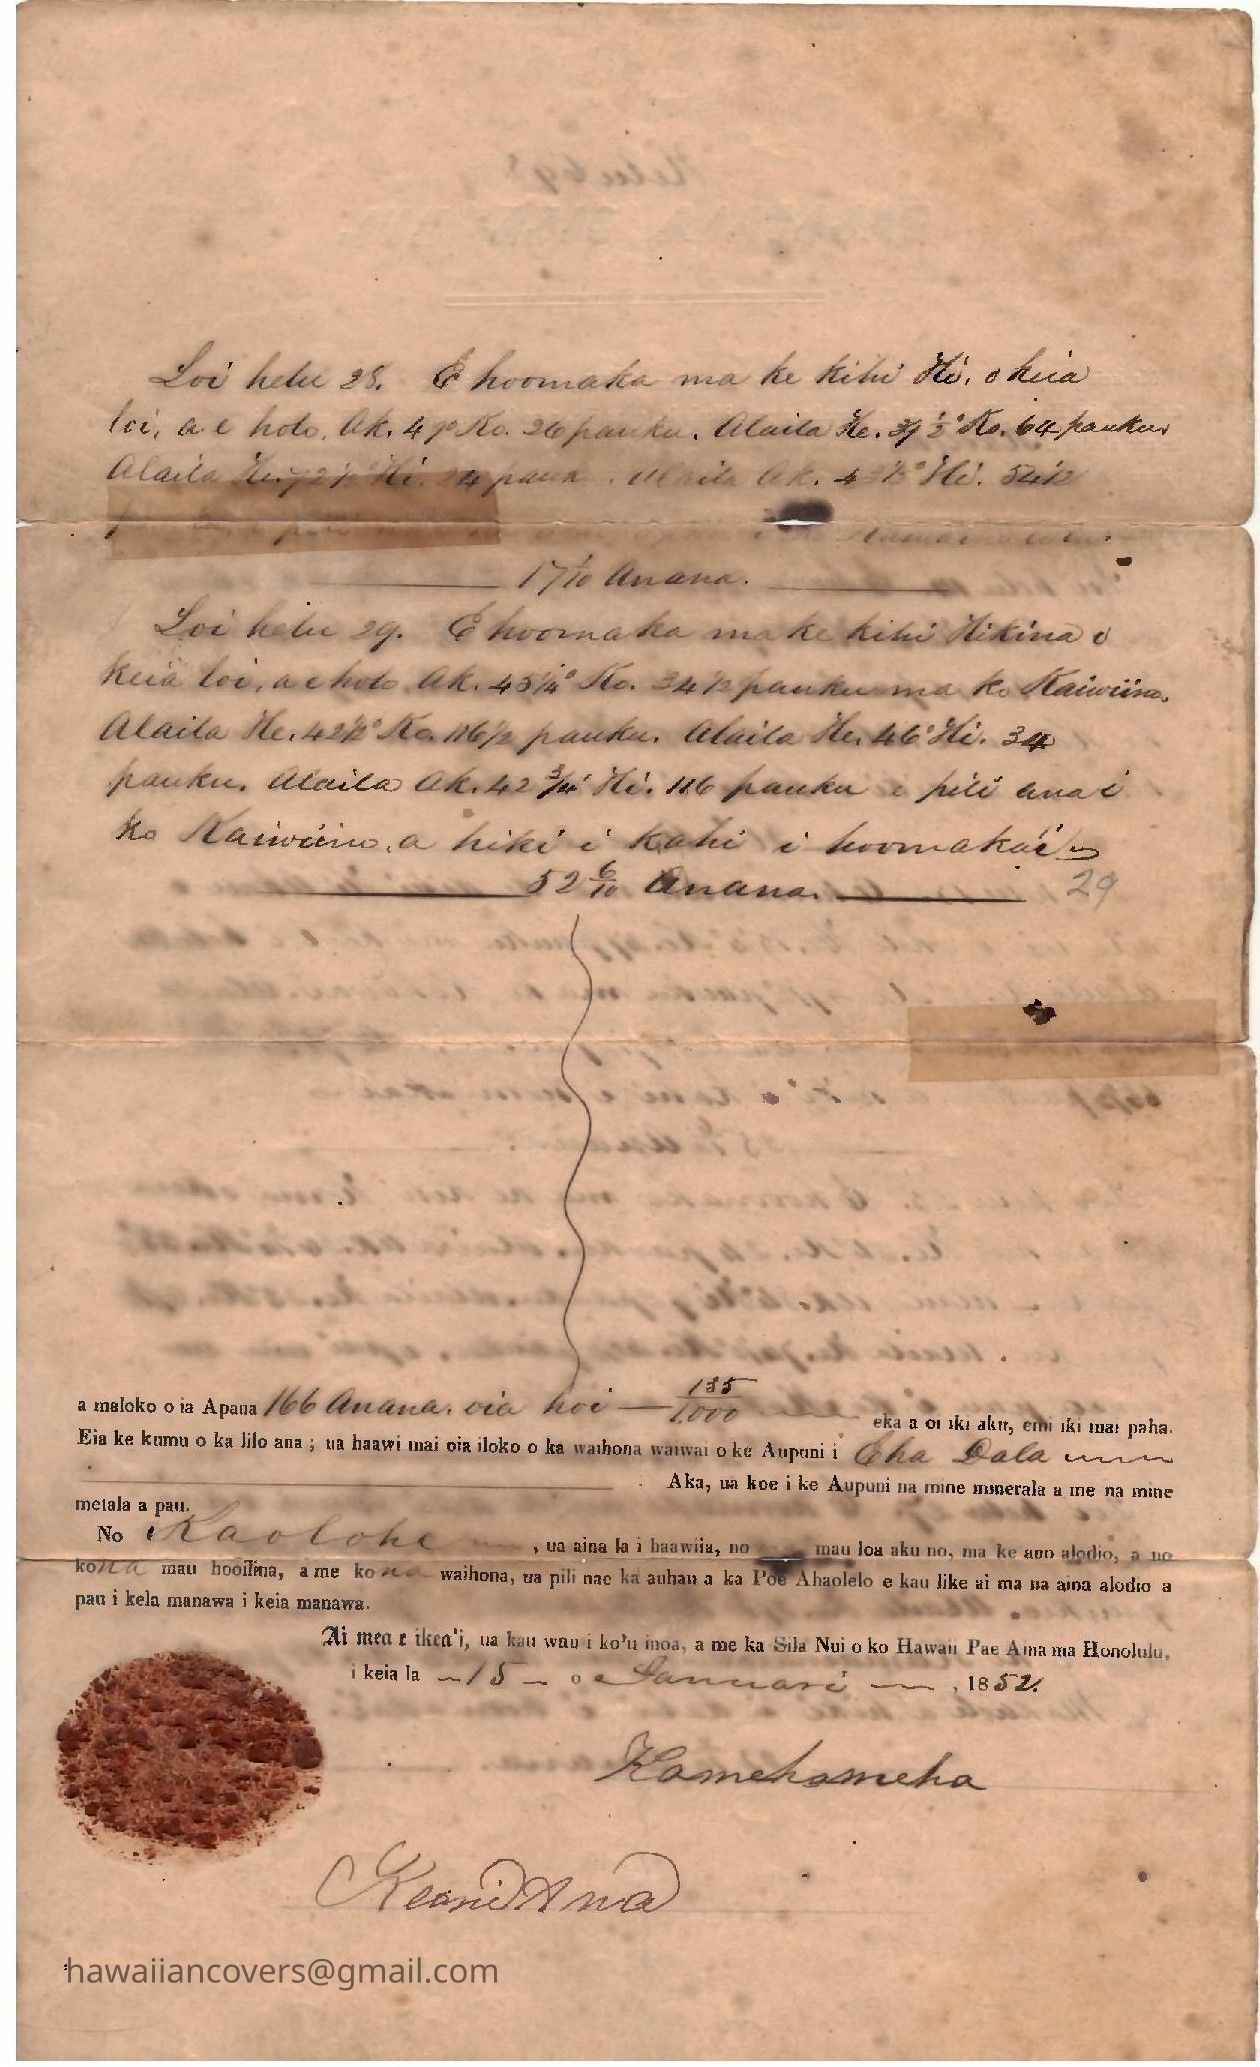 Loi helu 28. E hoomaka ma ke kihi Hi. o keia
loi, a e holo Ak. 49° Ko. 26 pauku. Alaila He. 39½° Ko. 64 pauku.
Alaila He. 72½° Hi. 24 pauku. Alaila Ak. Hi. 54½
17 1/10 Anana.
Loi helu 29. E hoomaka ma ke kihi Hikina o
keia loi, a e holo Ak. 45¼° Ko. 34½ pauku ma ko Kaiwiino.
Alaila He. 42½° Ko. 116½ pauku. Alaila He. 46° Hi. 34
pauku. Alaila Ak. 42¾° Hi. 116 pauku e pili ana i
ko Kaiwiino, a hiki i kahi i hoomaka'i
52 6/10 Anana. 29
a maloko o ia Apana 166 Anana. oia hoi — 135/1000 eka a oi iki aku, emi iki mai paha.
Eia ke kumu o ka lilo ana; ua haawi mai oia iloko o ka waihona waiwai o ke Aupuni i Eha Dala
Aka, ua koe i ke Aupuni na mine minerala a me na mine
metala a pau.
No Kaolohe, ua aina la i haawiia, no mau loa aku no, ma ke ano alodio, a no
kona mau hooilina, a me kona waihona, ua pili nae ka auhau a ka Poe Ahaolelo e kau like ai ma na aina alodio a
pau i kela manawa i keia manawa.
Ai mea e ikea'i, ua kau wau i ko'u inoa, a me ka Sila Nui o ko Hawaii Pae Aina ma Honolulu,
i keia la 15 o Ianuari, 1852.
Kamehameha
Keoni Ana
hawaiiancovers@gmail.com